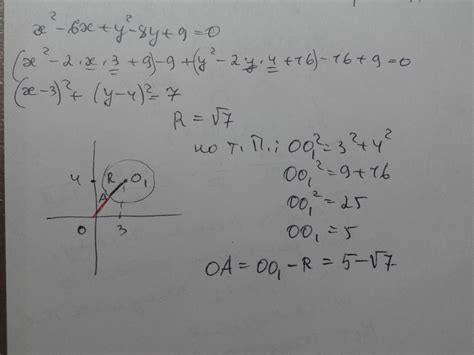 x² - 6x + y² - 8y + 9 = 0
(x² - 2 · x · 3 + 9) - 9 + (y² - 2 y · 4 + 16) - 16 + 9 = 0
(x - 3)² + (y - 4)² = 7
R = √7
по т. П.: OO₁² = 3² + 4²
OO₁² = 9 + 16
OO₁² = 25
OO₁ = 5
OA = OO₁ - R = 5 - √7
4 R O₁
A
O 3